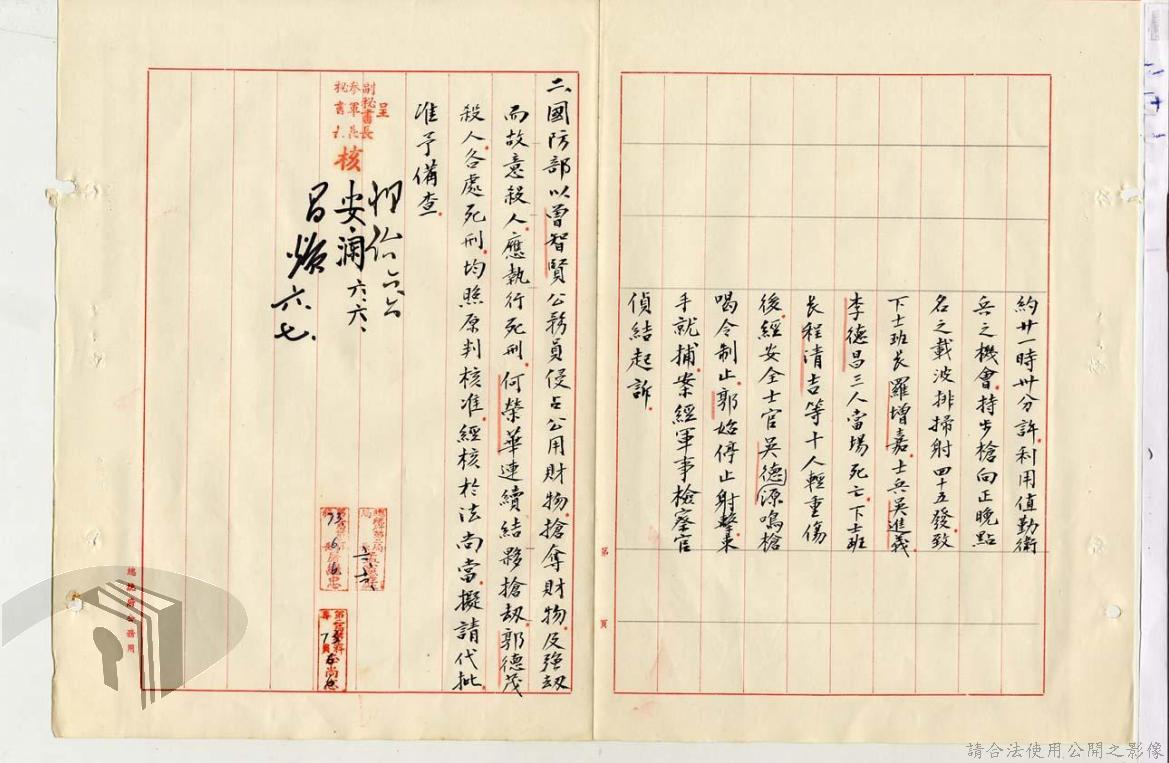 約廿一時卅分許，利用值勤衛
兵之機會，持步槍向正晚點
名之載波排掃射四十五發，致
下士班長羅增嘉、士兵吳進義、
李德昌三人當場死亡，下士班
長程清吉等十人輕重傷
後，經安全士官吳德源鳴槍
喝令制止，郭始停止射擊，束
手就捕，案經軍事檢察官
偵結起訴。
第 頁
二、國防部以曾智賢公務員侵占公用財物，搶奪財物，及強劫
而故意殺人，應執行死刑，何榮華連續結夥搶劫，郭德茂
殺人，各處死刑，均照原判核准，經核於法尚當，擬請代批
准予備查。
呈
副秘書長
參軍長
秘書長
核
安瀾 六、六、
六、七、
73. 6. 6
總統府公務用
請合法使用公開之影像